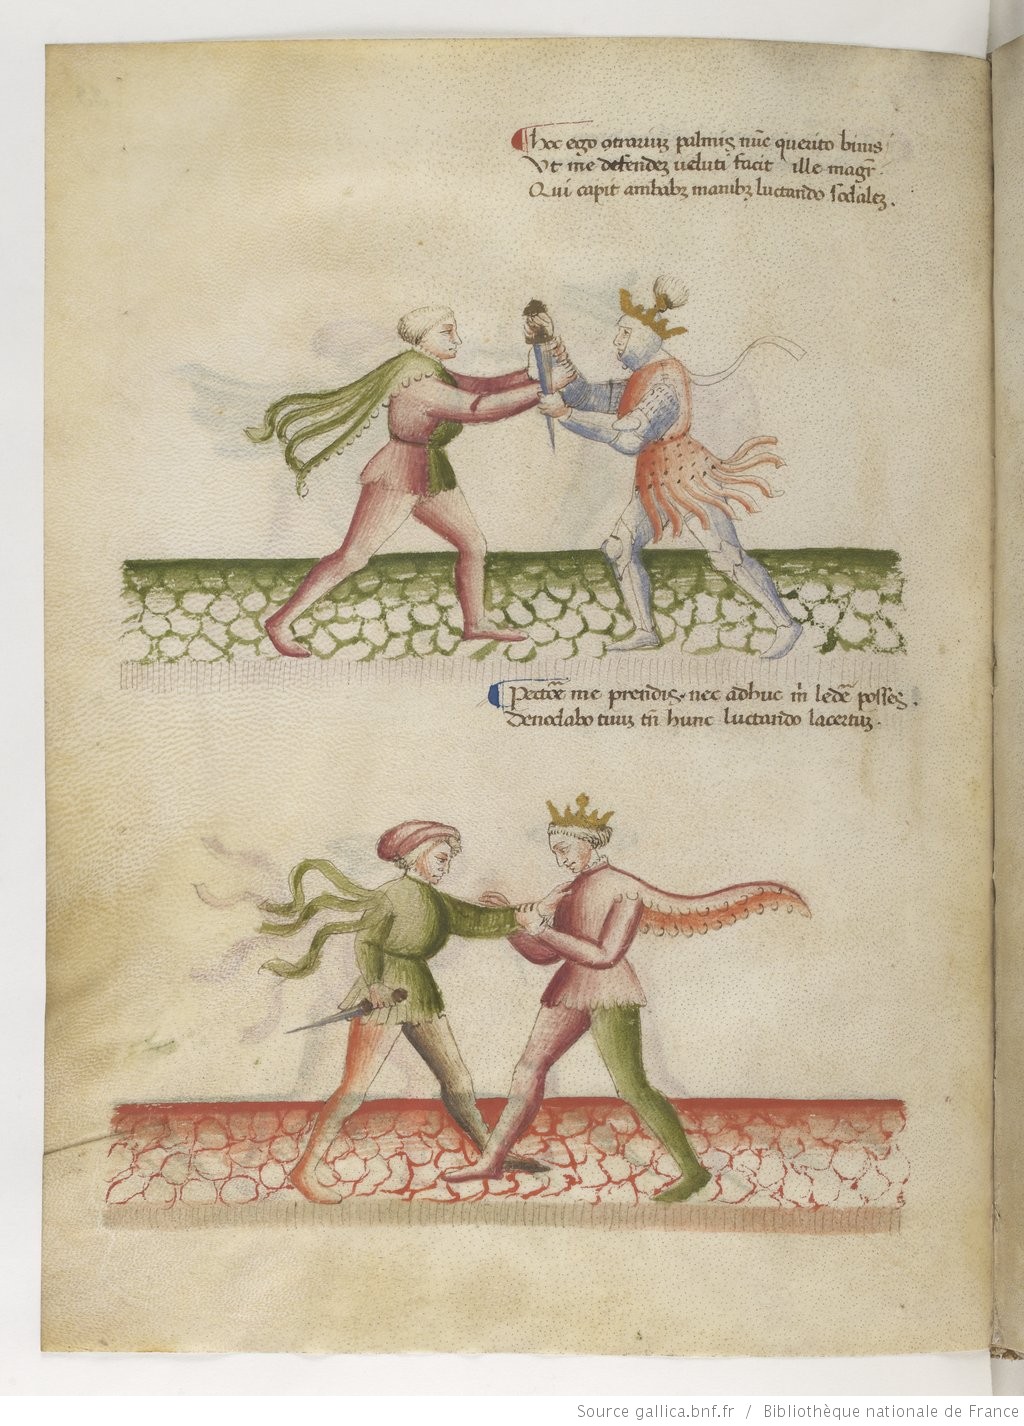 hoc ego ɔtrariuꝫ palmis nūc querito binis
Vt me defendeꝫ veluti facit ille magr̄.
Qui capit ambabꝫ manibꝫ luctando sodaleꝫ.
Pectore me prendis. nec adhuc m̄ ledē posses.
Denodabo tuuꝫ tn̄ hunc luctando lacertuꝫ.
Source gallica.bnf.fr / Bibliothèque nationale de France